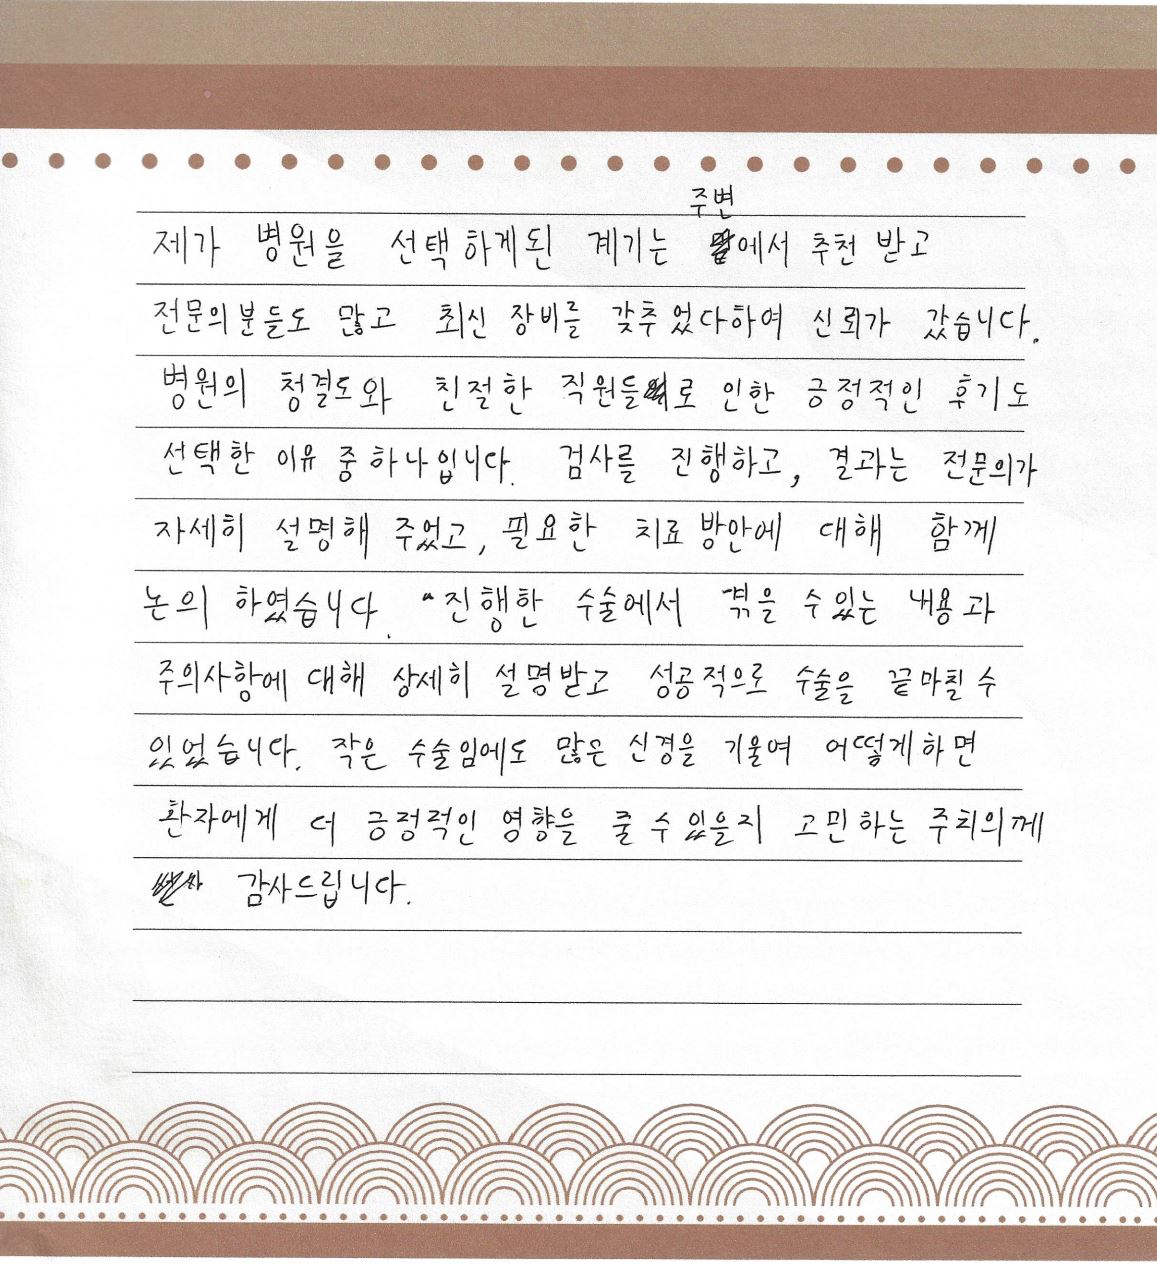 주변
제가 병원을 선택하게된 계기는 에서 추천 받고
전문의분들도 많고 최신 장비를 갖추었다하여 신뢰가 갔습니다.
병원의 청결도와 친절한 직원들로 인한 긍정적인 후기도
선택한 이유 중 하나입니다. 검사를 진행하고, 결과는 전문의가
자세히 설명해 주었고, 필요한 치료 방안에 대해 함께
논의 하였습니다. 진행한 수술에서 겪을 수 있는 내용과
주의사항에 대해 상세히 설명받고 성공적으로 수술을 끝마칠 수
있었습니다. 작은 수술임에도 많은 신경을 기울여 어떻게하면
환자에게 더 긍정적인 영향을 줄 수 있을지 고민하는 주치의께
감사드립니다.